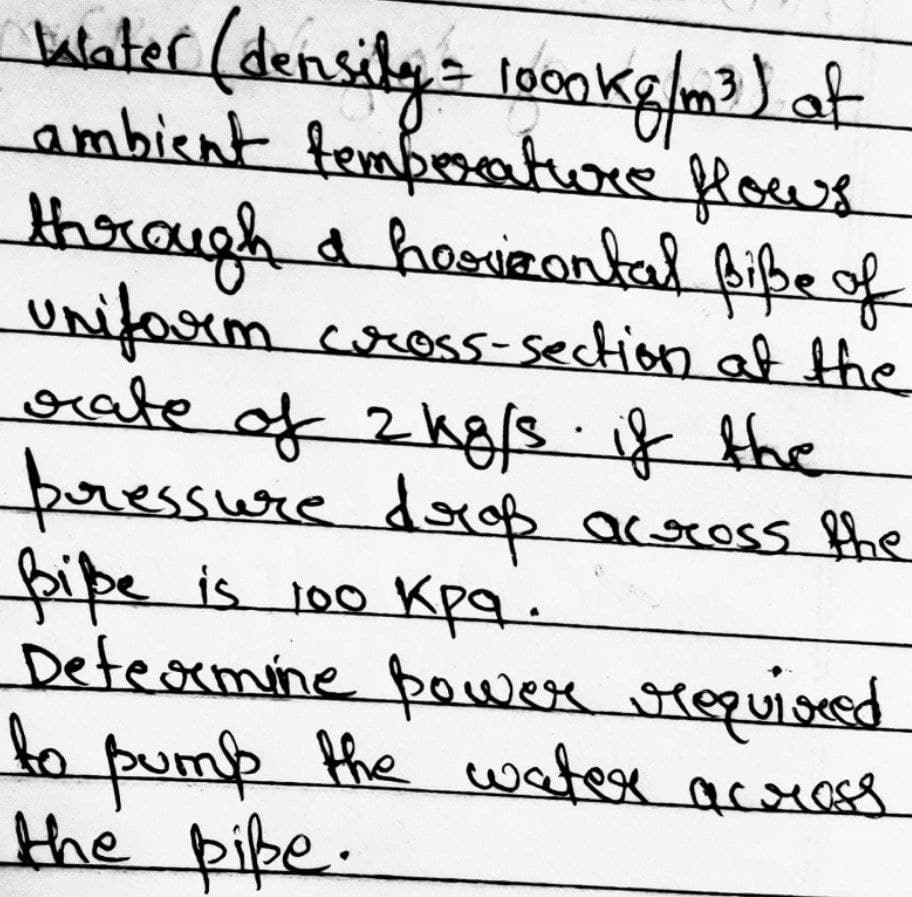 Water (density = 1000kg/m³) at
ambient temperature flows
through a horizontal pipe of
uniform cross-section at the
rate of 2 kg/s. if the
pressure drop across the
pipe is 100 Kpa.
Determine power required
to pump the water across
the pipe.